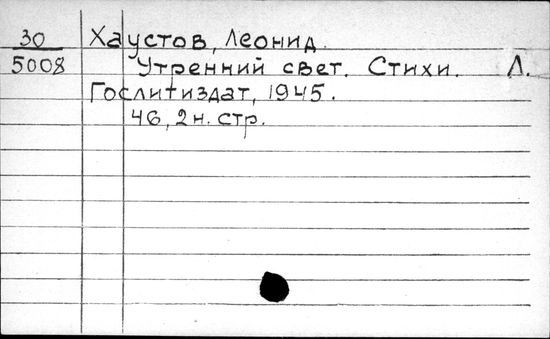 30 Хаустов, Леонид.
5008 Утренний свет. Стихи. Л.
Гослитиздат, 1945.
46, 2 н. стр.